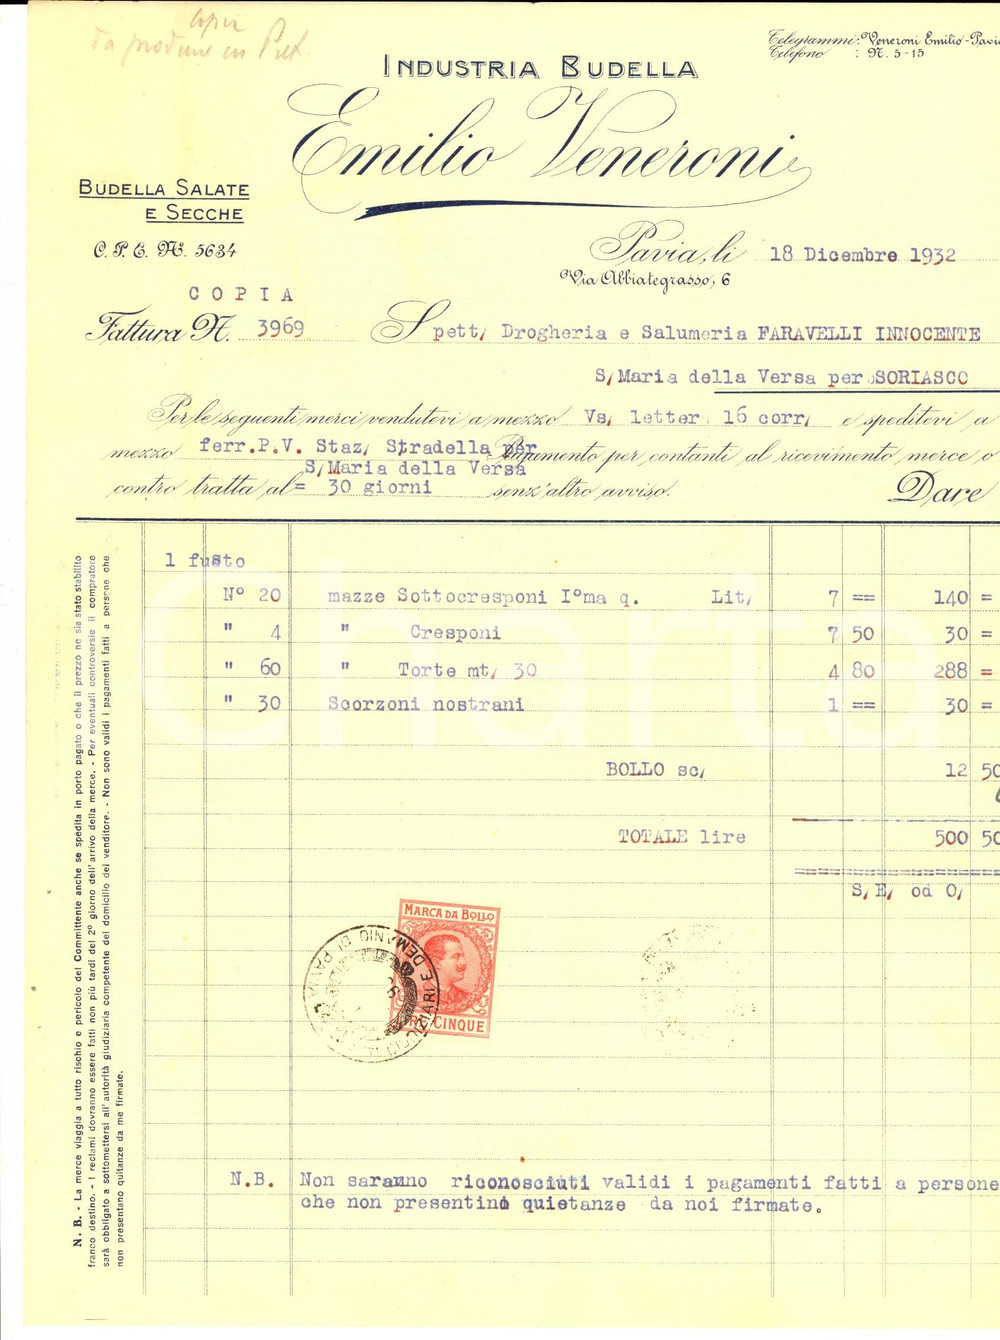 copia
da produrre in Pret.
Telegrammi: Veneroni Emilio-Pavia
Telefono : N. 5-15
INDUSTRIA BUDELLA
Emilio Veneroni
BUDELLA SALATE
E SECCHE
C. P. E. N. 5634
Pavia, li 18 Dicembre 1932
Via Abbiategrasso, 6
COPIA
Fattura N. 3969
Spett/ Drogheria e Salumeria FARAVELLI INNOCENTE
S/Maria della Versa per SORIASCO
Per le seguenti merci vendutevi a mezzo Vs/ letter 16 corr/ e speditevi a
mezzo ferr.P.V. Staz/ Stradella per Pagamento per contanti al ricevimento merce o
S/Maria della Versa
contro tratta al= 30 giorni senz'altro avviso. Dare
1 fusto
N° 20 mazze Sottocresponi I°ma q. Lit/ 7 == 140 =
" 4 " Cresponi 7 50 30 =
" 60 " Torte mt/ 30 4 80 288 =
" 30 Scorzoni nostrani 1 == 30 =
BOLLO sc/ 12 50
TOTALE lire 500 50
S/E/ od O/
MARCA DA BOLLO
CINQUE
N.B. Non saranno riconosciuti validi i pagamenti fatti a persone
che non presentino quietanze da noi firmate.
N. B. - La merce viaggia a tutto rischio e pericolo del Committente anche se spedita in porto pagato o che il prezzo ne sia stato stabilito
franco destino. - I reclami dovranno essere fatti non più tardi del 2° giorno dell'arrivo della merce. - Per eventuali controversie il compratore
sarà obbligato a sottomettersi all'autorità giudiziaria competente del domicilio del venditore. - Non sono validi i pagamenti fatti a persone che
non presentano quitanze da me firmate.
charta